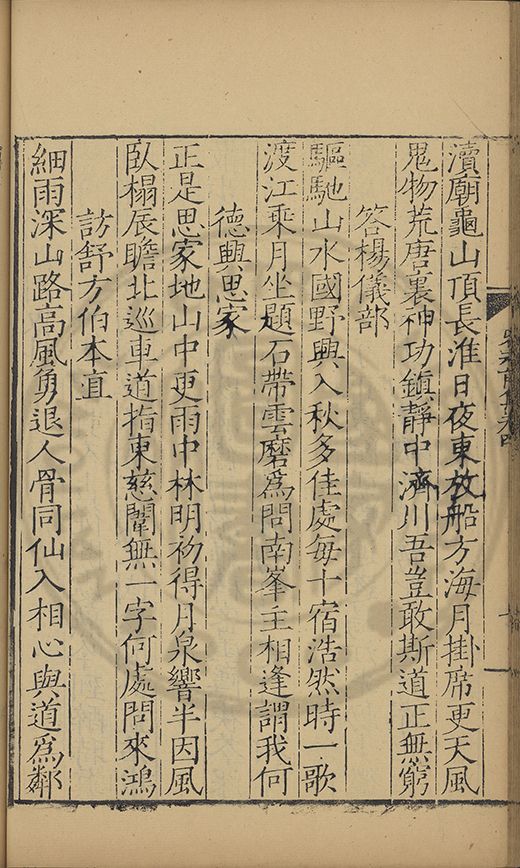 瀆廟龜山頂長淮日夜東放船方海月掛席更天風
鬼物荒唐裏神功鎮靜中濟川吾豈敢斯道正無窮
答楊儀部
驅馳山水國野興入秋多佳處每十宿浩然時一歌
渡江乘月坐題石帶雲磨為問南峯主相逢謂我何
德興思家
正是思家地山中更雨中林明初得月泉響半因風
臥榻辰瞻北巡車道指東慈闈無一字何處問來鴻
訪舒方伯本直
細雨深山路高風勇退人骨同仙入相心與道為鄰